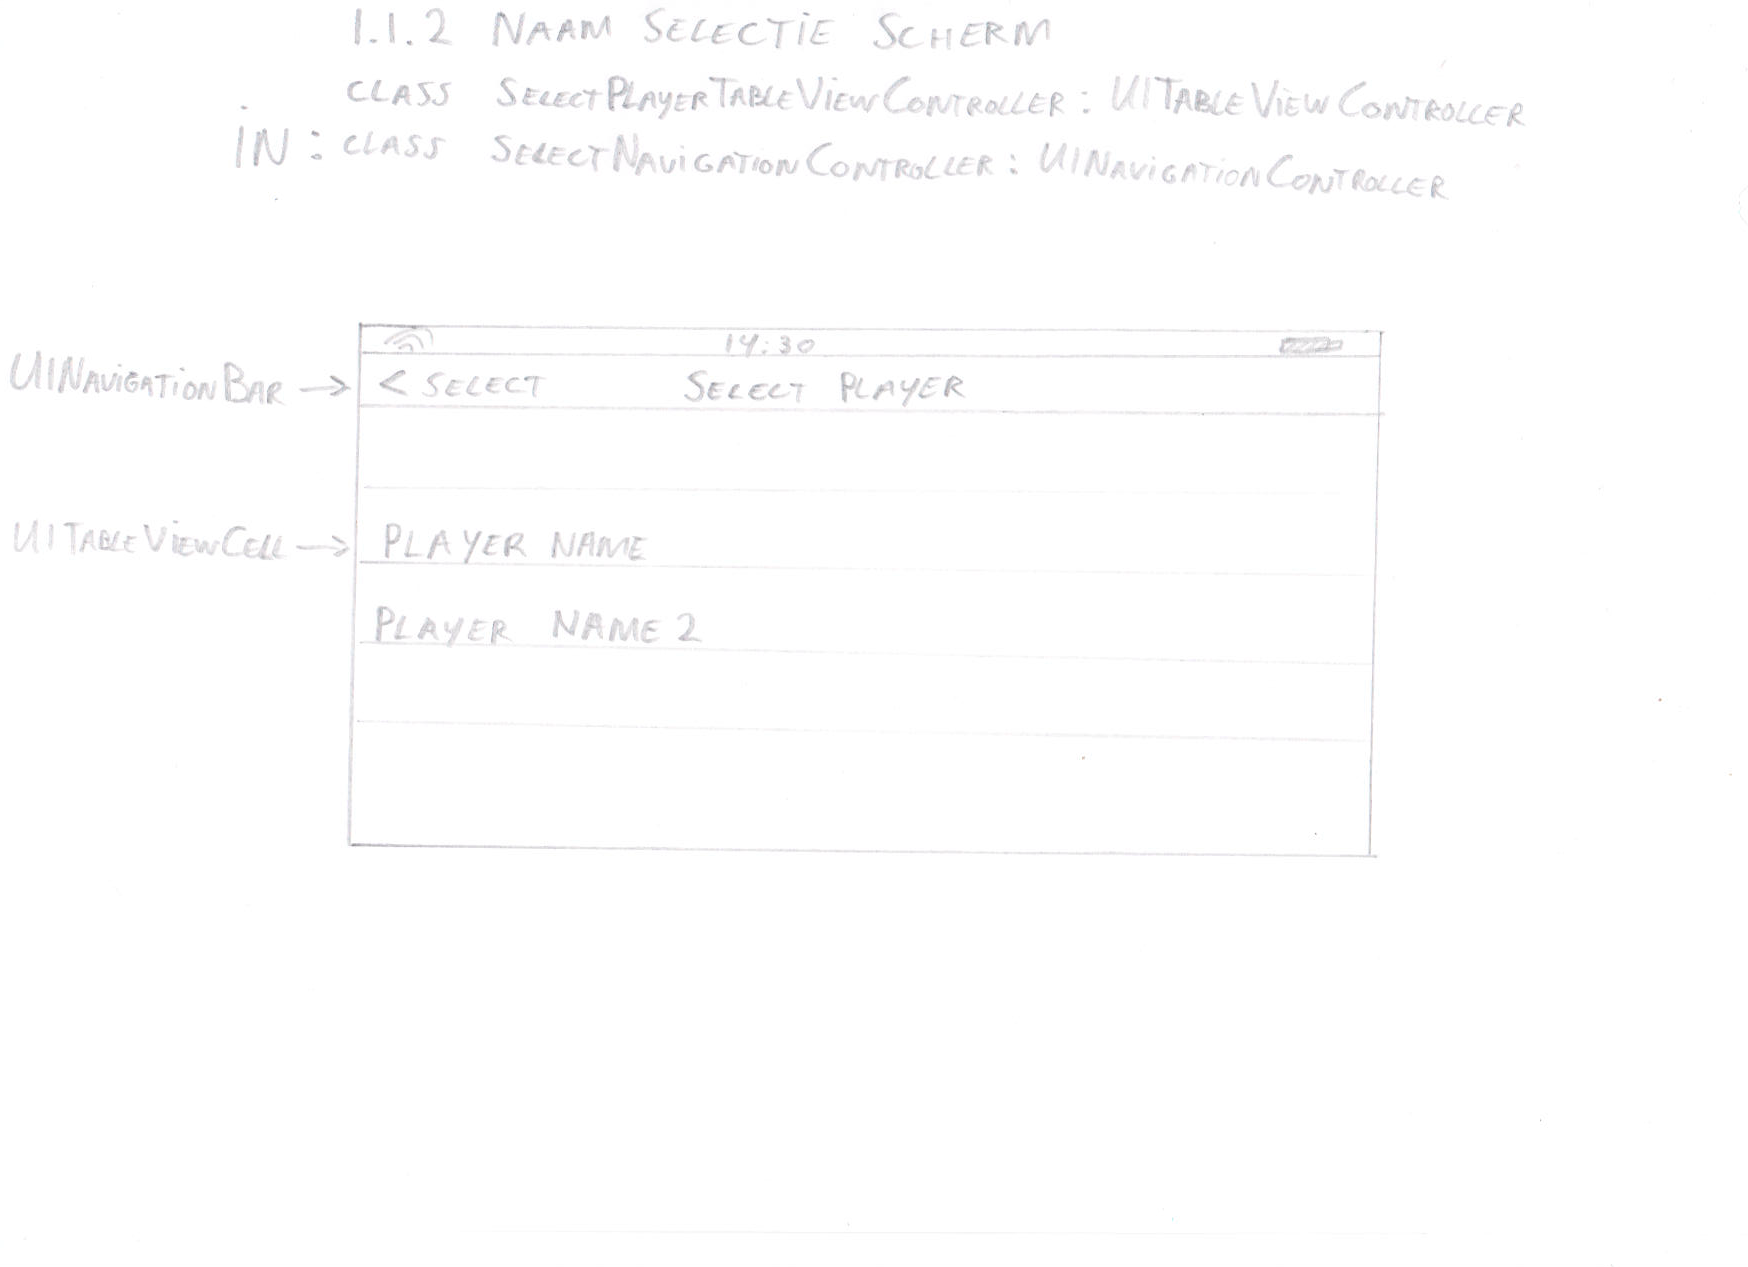 1.1.2 NAAM SELECTIE SCHERM
CLASS SELECTPLAYERTABLEVIEWCONTROLLER: UITABLEVIEWCONTROLLER
IN: CLASS SELECTNAVIGATIONCONTROLLER: UINAVIGATIONCONTROLLER
14:30
UINAVIGATIONBAR → < SELECT SELECT PLAYER
UITABLEVIEWCELL → PLAYER NAME
PLAYER NAME 2